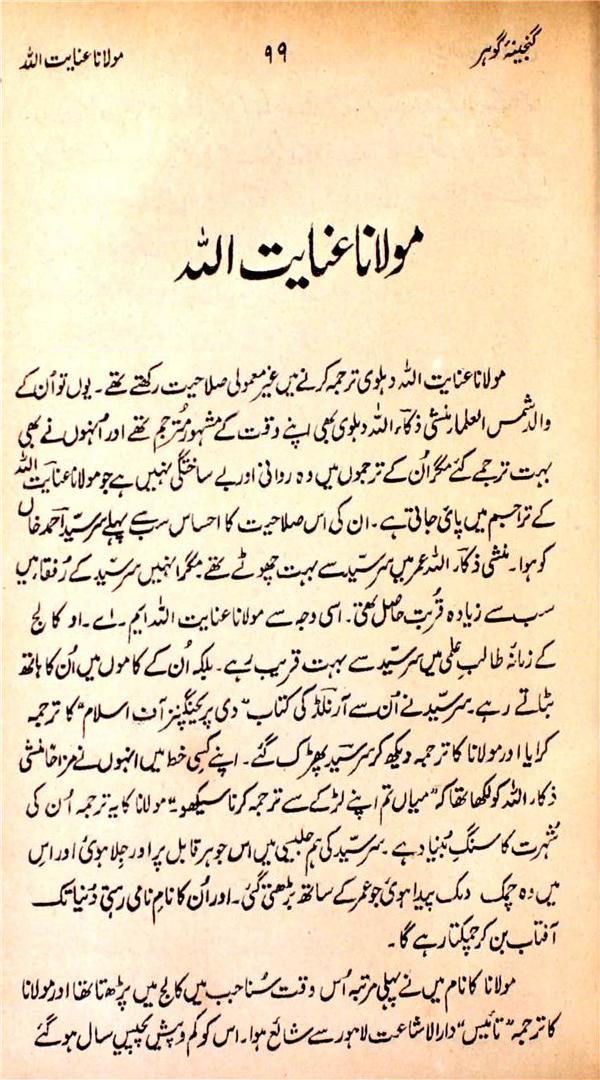 گنجینۂ گوہر ۹۹ مولانا عنایت اللہ
مولانا عنایت اللہ
مولانا عنایت اللہ دہلوی ترجمہ کرنے میں غیر معمولی صلاحیت رکھتے تھے ۔ یوں تو اُن کے
والد شمس العلمار منشی ذکاء اللہ دہلوی بھی اپنے وقت کے مشہور مُترجم تھے اور اُنہوں نے بھی
بہت ترجمے کئے مگر اُن کے ترجموں میں وہ روانی اور بے ساختگی نہیں ہے جو مولانا عنایت اللہ
کے تراجیم میں پائی جاتی ہے ۔ ان کی اس صلاحیت کا احساس سب سے پہلے سرسیّد احمد خاں
کو ہوا ۔ منشی ذکار اللہ عمر میں سرسیّد سے بہت چھوٹے تھے ۔ مگر انہیں سرسیّد کے رُفقار میں
سب سے زیادہ قُربت حاصل تھی ۔ اسی وجہ سے مولانا عنایت اللہ ایم ۔ اے ۔ او کالج
کے زمانۂ طالب علمی میں سرسیّد سے بہت قریب رہے ۔ بلکہ اُن کے کاموں میں اُن کا ہاتھ
بٹاتے رہے ۔ سرسیّد نے اُن سے آرنلڈ کی کتاب "دی پریچینگز آف اسلام" کا ترجمہ
کرایا اور مولانا کا ترجمہ دیکھ کر سرسیّد پھڑک گئے ۔ اپنے کسی خط میں انہوں نے مزاحاً منشی
ذکار اللہ کو لکھا تھا کہ "میاں تم اپنے لڑکے سے ترجمہ کرنا سیکھو ۔" مولانا کا یہ ترجمہ اُن کی
شُہرت کا سنگِ بُنیاد ہے ۔ سرسیّد کی ہم جلیسی میں اس جوہر قابل پر اور جِلا ہوئی اور اس
میں وہ چمک دمک پیدا ہوئی جو عمر کے ساتھ بڑھتی گئی ۔ اور اُن کا نامِ نامی رہتی دُنیا تک
آفتاب بن کر چمکتا رہے گا ۔
مولانا کا نام میں نے پہلی مرتبہ اُس وقت سُنا جب میں کالج میں پڑھتا تھا اور مولانا
کا ترجمہ "تائیس" دارالاشاعت لاہور سے شائع ہوا ۔ اس کو کم و پیش پچیس سال ہو گئے